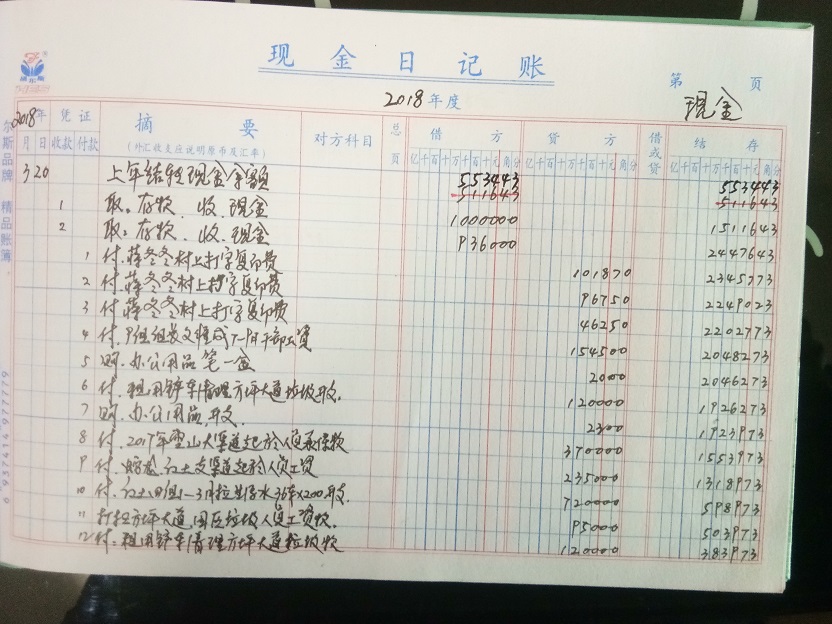 现金日记账
第 页
2018年度
现金
2018年 凭证 摘要 对方科目 总页 借方 贷方 借或贷 结存
月 日 收款 付款 (外汇收支应说明原币及汇率) 亿千百十万千百十元角分 亿千百十万千百十元角分 亿千百十万千百十元角分
3 20 上年结转现金余额 553443 553443
511643 511643
1 取.存款.收.现金 1000000 1511643
2 取.存款.收.现金 936000 2447643
1 付.蒋冬冬村上打字复印费 101870 2345773
2 付.蒋冬冬村上打字复印费 96750 2249023
3 付.蒋冬冬村上打字复印费 46250 2202773
4 付.9组组长文 1-7月干部工资 154500 2048273
5 购.办公用品笔一盒 2000 2046273
6 付.租用铲车清理方坪大道垃圾开支. 120000 1926273
7 购.办公用品.开支. 2300 1923973
8 付.2017年 山大渠道起淤人员 款 370000 1553973
9 付. 红土支渠道起淤人员工资 235000 1318973
10 付.红土 组1-3月拉 水36车x200开支. 720000 598973
11 打扫方坪大道.园区垃圾人员工资款. 95000 503973
12 付.租用铲车清理方坪大道垃圾款 120000 383973
尔斯品牌 精品账簿
6 937414 977779